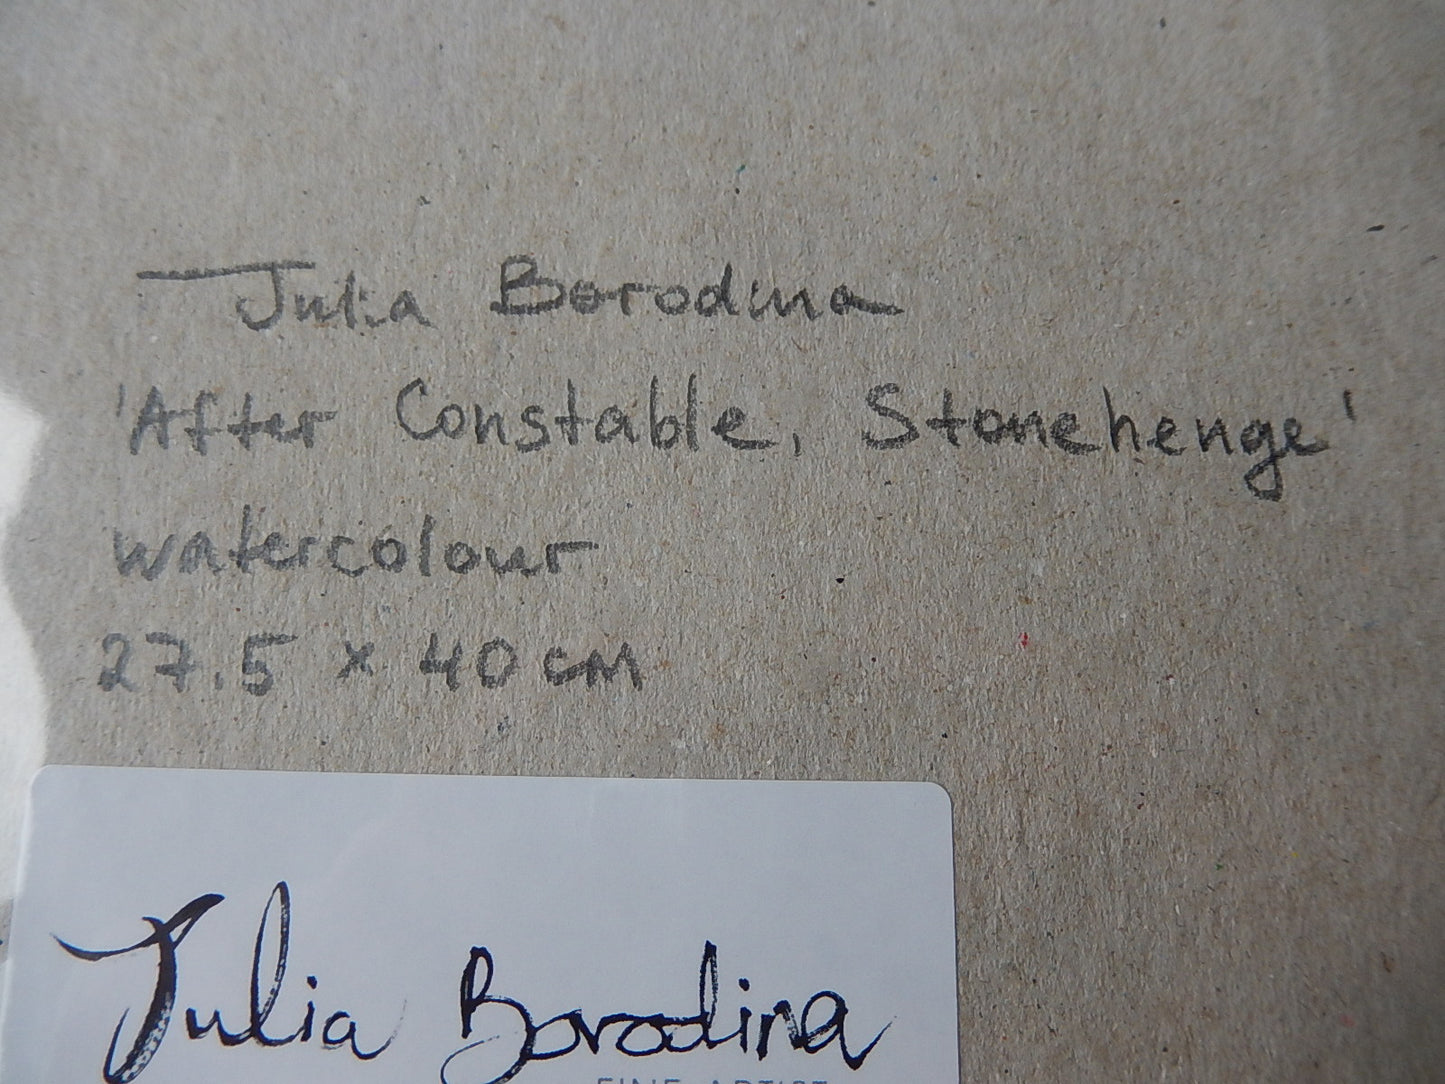 Julia Borodina
'After Constable, Stonehenge'
watercolour
27.5 x 40 cm
Julia Borodina
FINE ARTIST